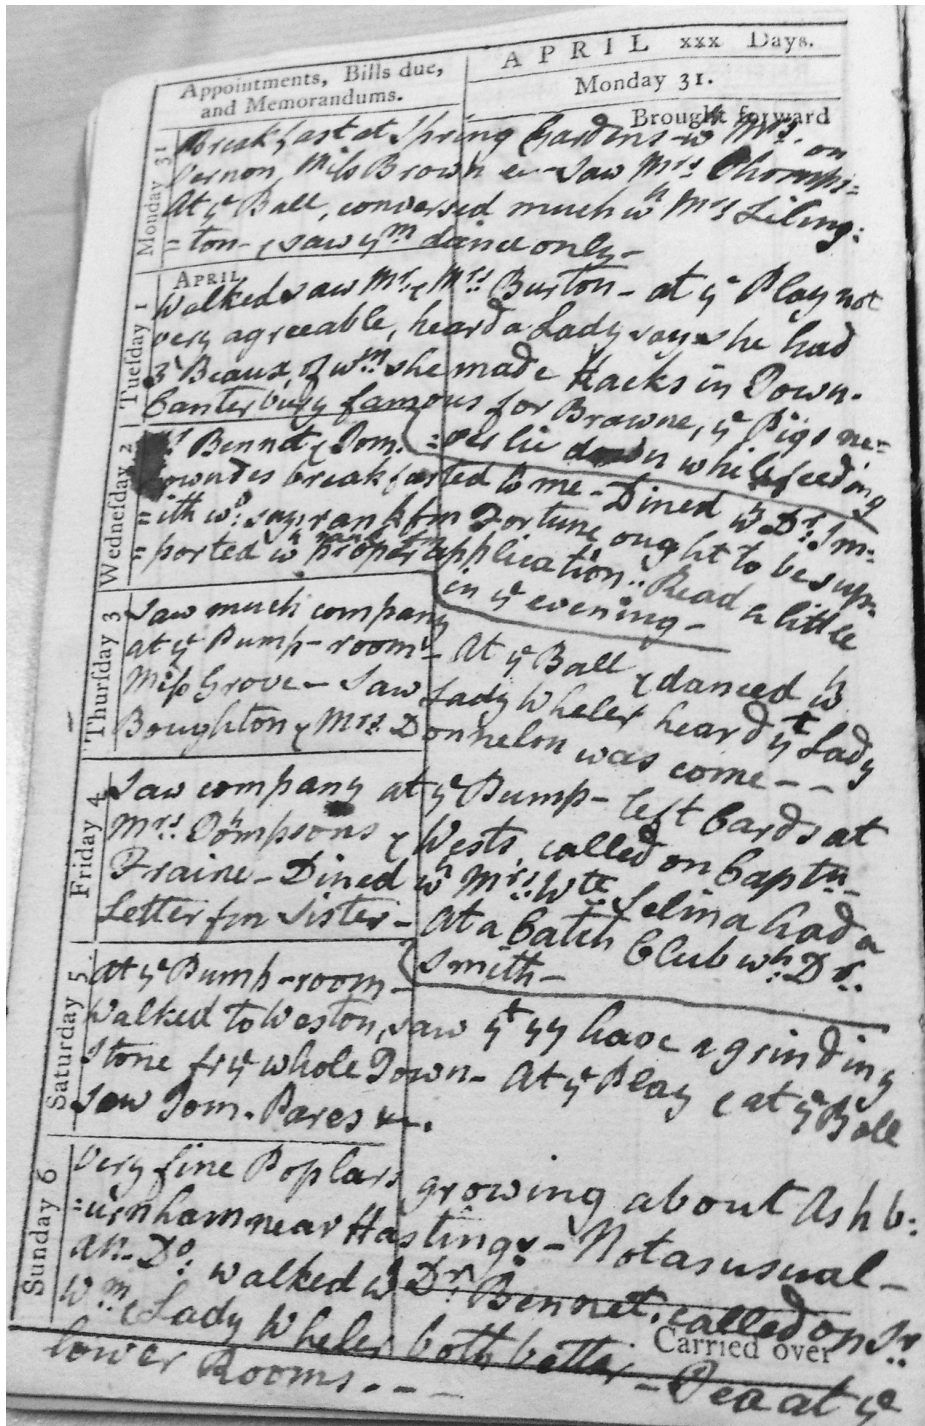 APRIL xxx Days.
Appointments, Bills due,
and Memorandums.
Monday 31.
Brought forward
Monday 31
Breakfast at Spring Gardens - wh Mrs.
Vernon, Miss Brown &c - Saw Mrs Thomps=
on
At ye Ball, conversed much wh Mrs Liling:
"ton - & saw ym dance only -
APRIL
Tuesday 1
Walked saw Mr. & Mrs Burton - at ye Play not
very agreeable, heard a Lady say she had
3 Beaux, of wm she made Hacks in Town.
Canterbury famous for Brawne, ye Pigs ne=
=ver lie down while feeding
Wednesday 2
Bennet & Tom.
breakfasted wh me - Dined wh Dr. Sm=
"ith wo. says rank fm Fortune ought to be sup=
"ported wh proper application .. Read a little
in ye evening -
Thursday 3
Saw much company
at ye Pump-room - At ye Ball & danced wh
Miss Grove - Saw Lady Wheler heard yt Lady
Boughton & Mrs. Donnelon was come - -
Friday 4
Saw company at ye Pump - left Cards at
Mrs. Tompsons & Wests, called on Captn.
Fraine - Dined wh Mrs. Wte Selina had a
Letter fm Sister - At a Catch Club wh. Dr.
Smith -
Saturday 5
At ye Pump-room -
Walked to Weston, saw yt yy have a grinding
Stone fr ye whole Town - At ye Play & at ye Ball
saw Tom. Pares &c.
Sunday 6
Very fine Poplars growing about Ashb:
=urnham near Hastings - Not as usual -
an - Do. walked wh Dr. Bennet, called on Sr.
Wm & Lady Wheler both better - Tea at ye
Carried over
lower Rooms - - -